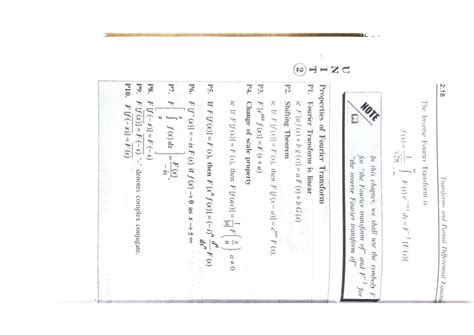 2.18 Transforms and Partial Differential Equatio
The Inverse Fourier Transform is
f(x) = 1/√2π ∫_{-∞}^{∞} F(s) e^{-isx} ds = F⁻¹[F(s)]
NOTE
In this chapter, we shall use the symbols F
for "the Fourier transform of" and F⁻¹ for
"the inverse Fourier transform of"
UNIT
2
Properties of Fourier Transform
P1. Fourier Transform is linear
ie F[a f(x) + b g(x)] = a F(s) + b G(s)
P2. Shifting Theorem
ie If F[f(x)] = F(s), then F[f(x − a)] = e^{ias} F(s).
P3. F[e^{iax} f(x)] = F(s + a)
P4. Change of scale property
ie If F[f(x)] = F(s), then F[f(ax)] = 1/|a| F(s/a) a ≠ 0
P5. If F[f(x)] = F(s), then F[xⁿ f(x)] = (−i)ⁿ dⁿ/dsⁿ F(s)
P6. F[f′(x)] = −is F(s) if f(x) → 0 as x → ± ∞
P7. F[∫ f(x) dx] = F(s)/−is
P8. F[f(−x)] = F(−s)
P9. F[f(x)] = F(−s) '–' denotes complex conjugate.
P10. F[f(−x)] = F(s)